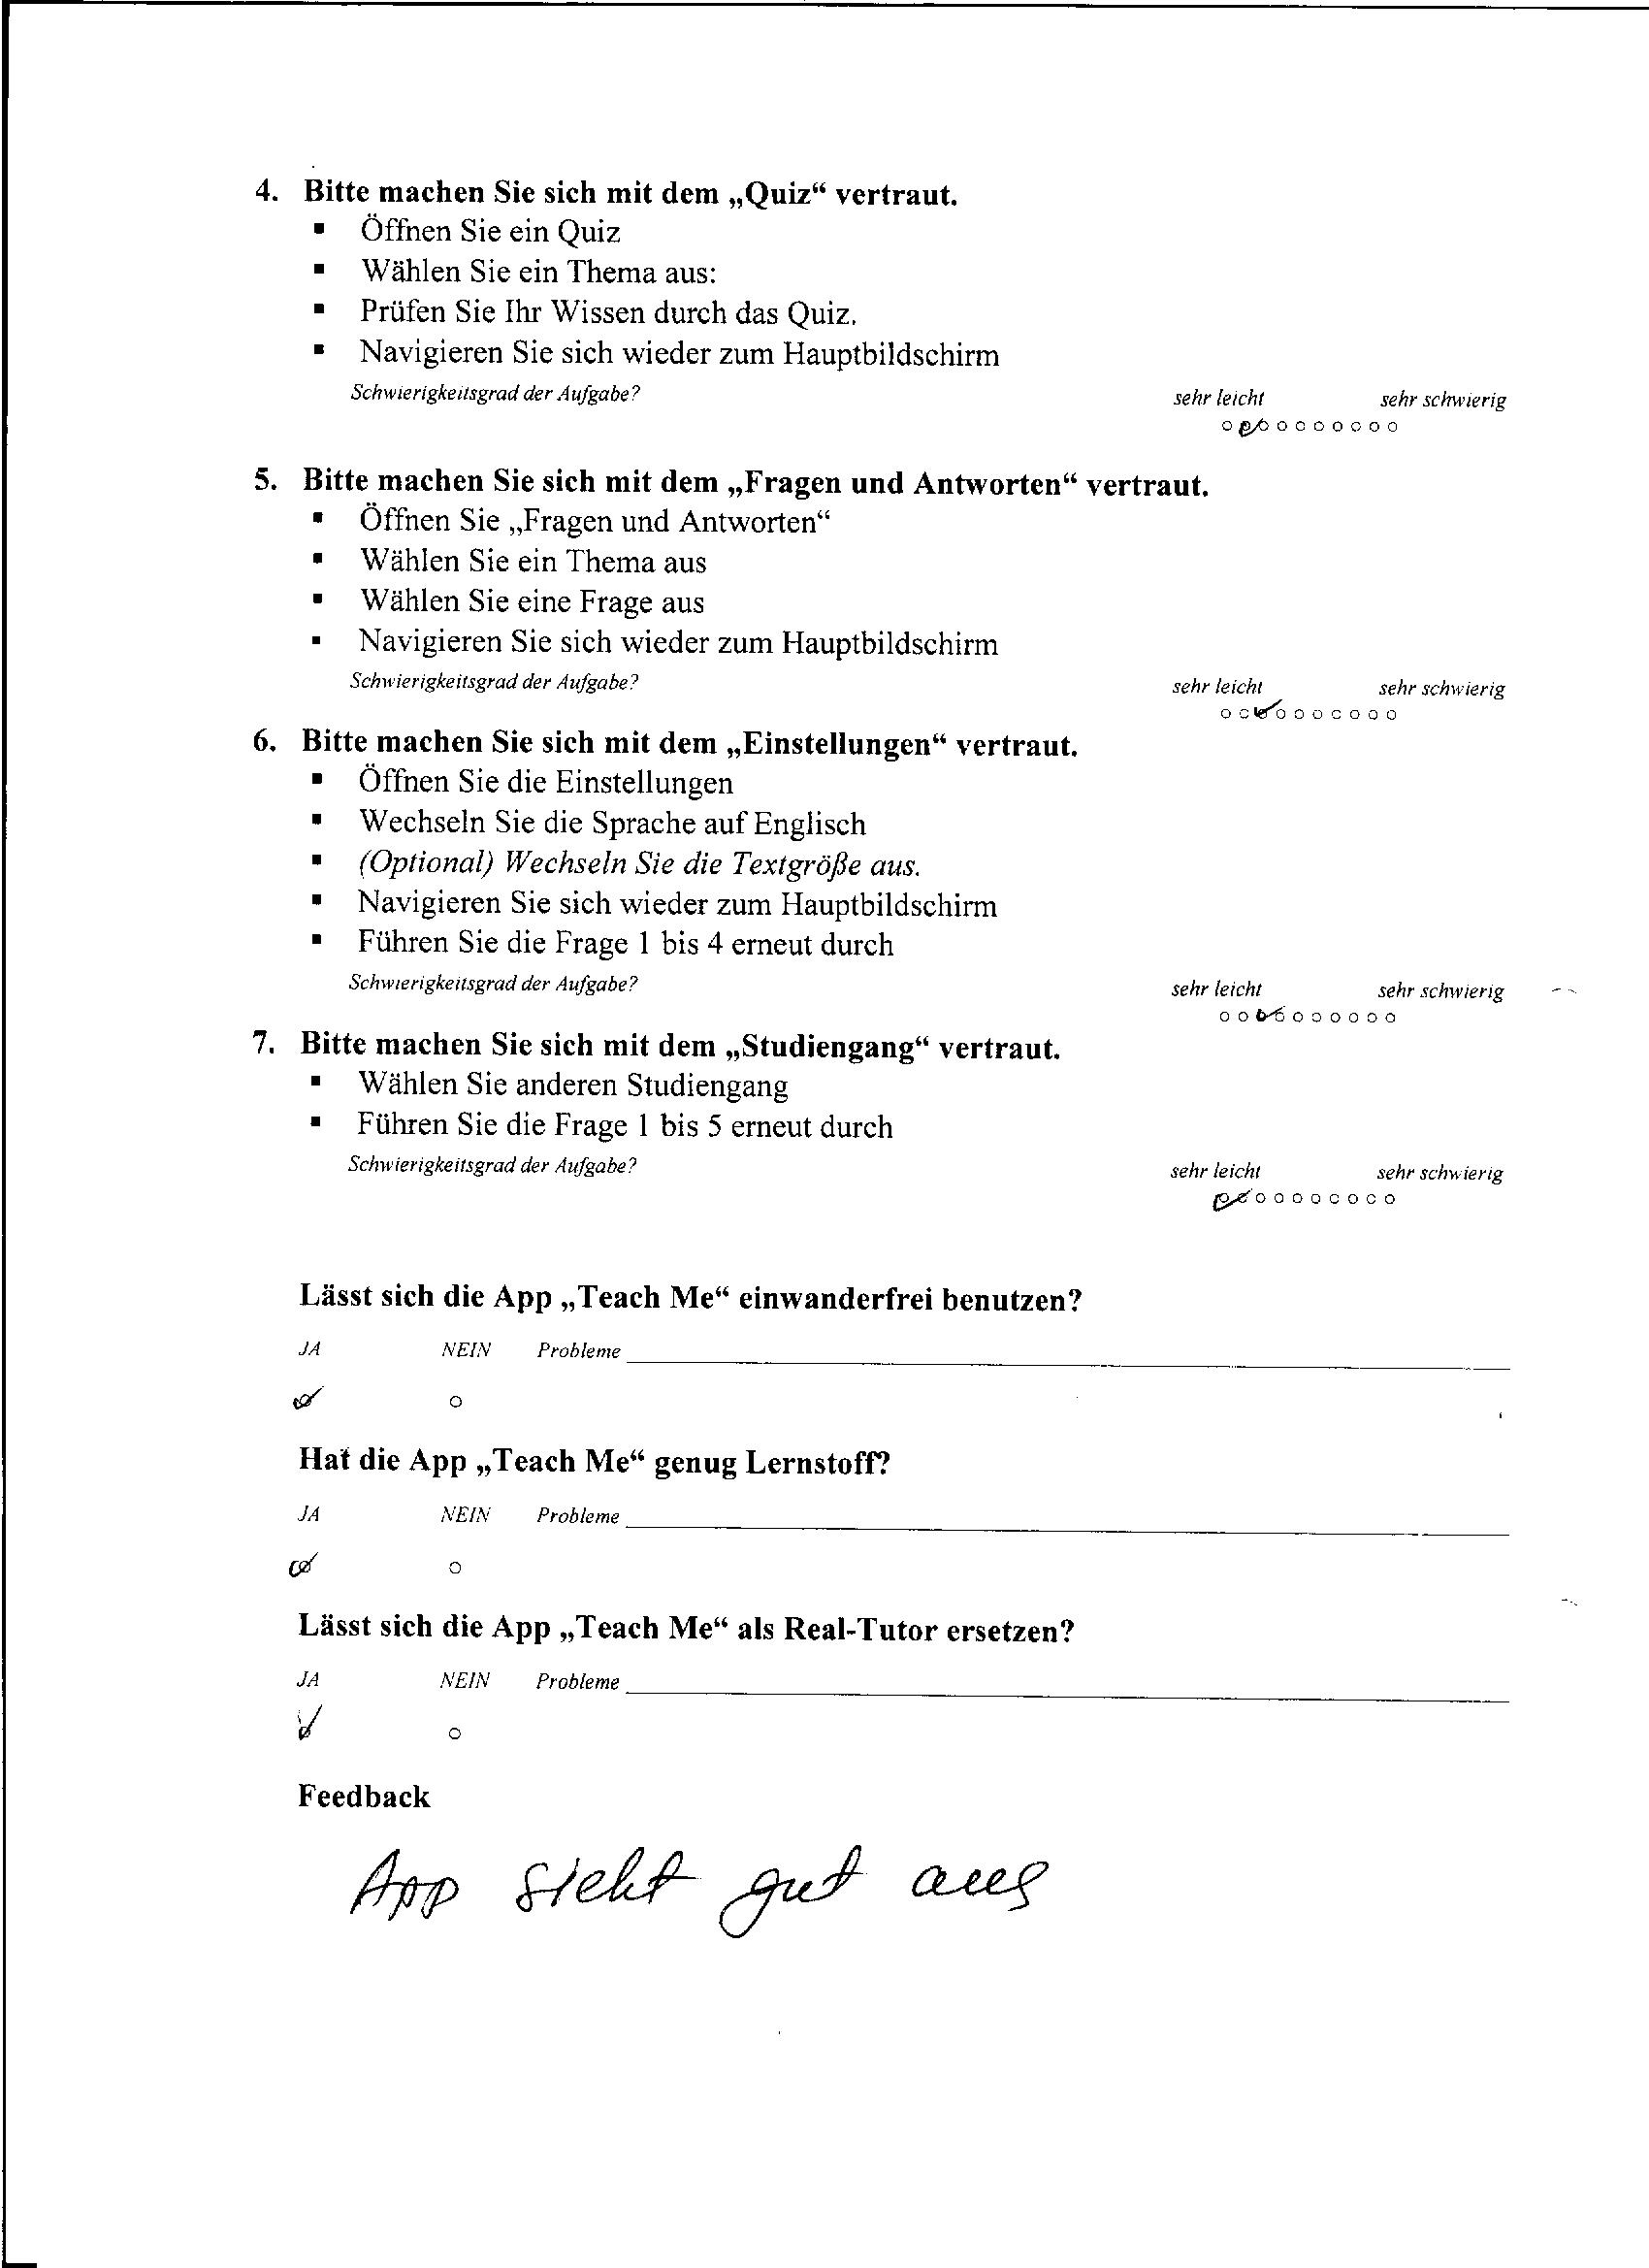 4. Bitte machen Sie sich mit dem „Quiz“ vertraut.
▪ Öffnen Sie ein Quiz
▪ Wählen Sie ein Thema aus:
▪ Prüfen Sie Ihr Wissen durch das Quiz.
▪ Navigieren Sie sich wieder zum Hauptbildschirm
Schwierigkeitsgrad der Aufgabe? sehr leicht sehr schwierig
5. Bitte machen Sie sich mit dem „Fragen und Antworten“ vertraut.
▪ Öffnen Sie „Fragen und Antworten“
▪ Wählen Sie ein Thema aus
▪ Wählen Sie eine Frage aus
▪ Navigieren Sie sich wieder zum Hauptbildschirm
Schwierigkeitsgrad der Aufgabe? sehr leicht sehr schwierig
6. Bitte machen Sie sich mit dem „Einstellungen“ vertraut.
▪ Öffnen Sie die Einstellungen
▪ Wechseln Sie die Sprache auf Englisch
▪ (Optional) Wechseln Sie die Textgröße aus.
▪ Navigieren Sie sich wieder zum Hauptbildschirm
▪ Führen Sie die Frage 1 bis 4 erneut durch
Schwierigkeitsgrad der Aufgabe? sehr leicht sehr schwierig
7. Bitte machen Sie sich mit dem „Studiengang“ vertraut.
▪ Wählen Sie anderen Studiengang
▪ Führen Sie die Frage 1 bis 5 erneut durch
Schwierigkeitsgrad der Aufgabe? sehr leicht sehr schwierig
Lässt sich die App „Teach Me“ einwanderfrei benutzen?
JA NEIN Probleme
Hat die App „Teach Me“ genug Lernstoff?
JA NEIN Probleme
Lässt sich die App „Teach Me“ als Real-Tutor ersetzen?
JA NEIN Probleme
Feedback
App sieht gut aus